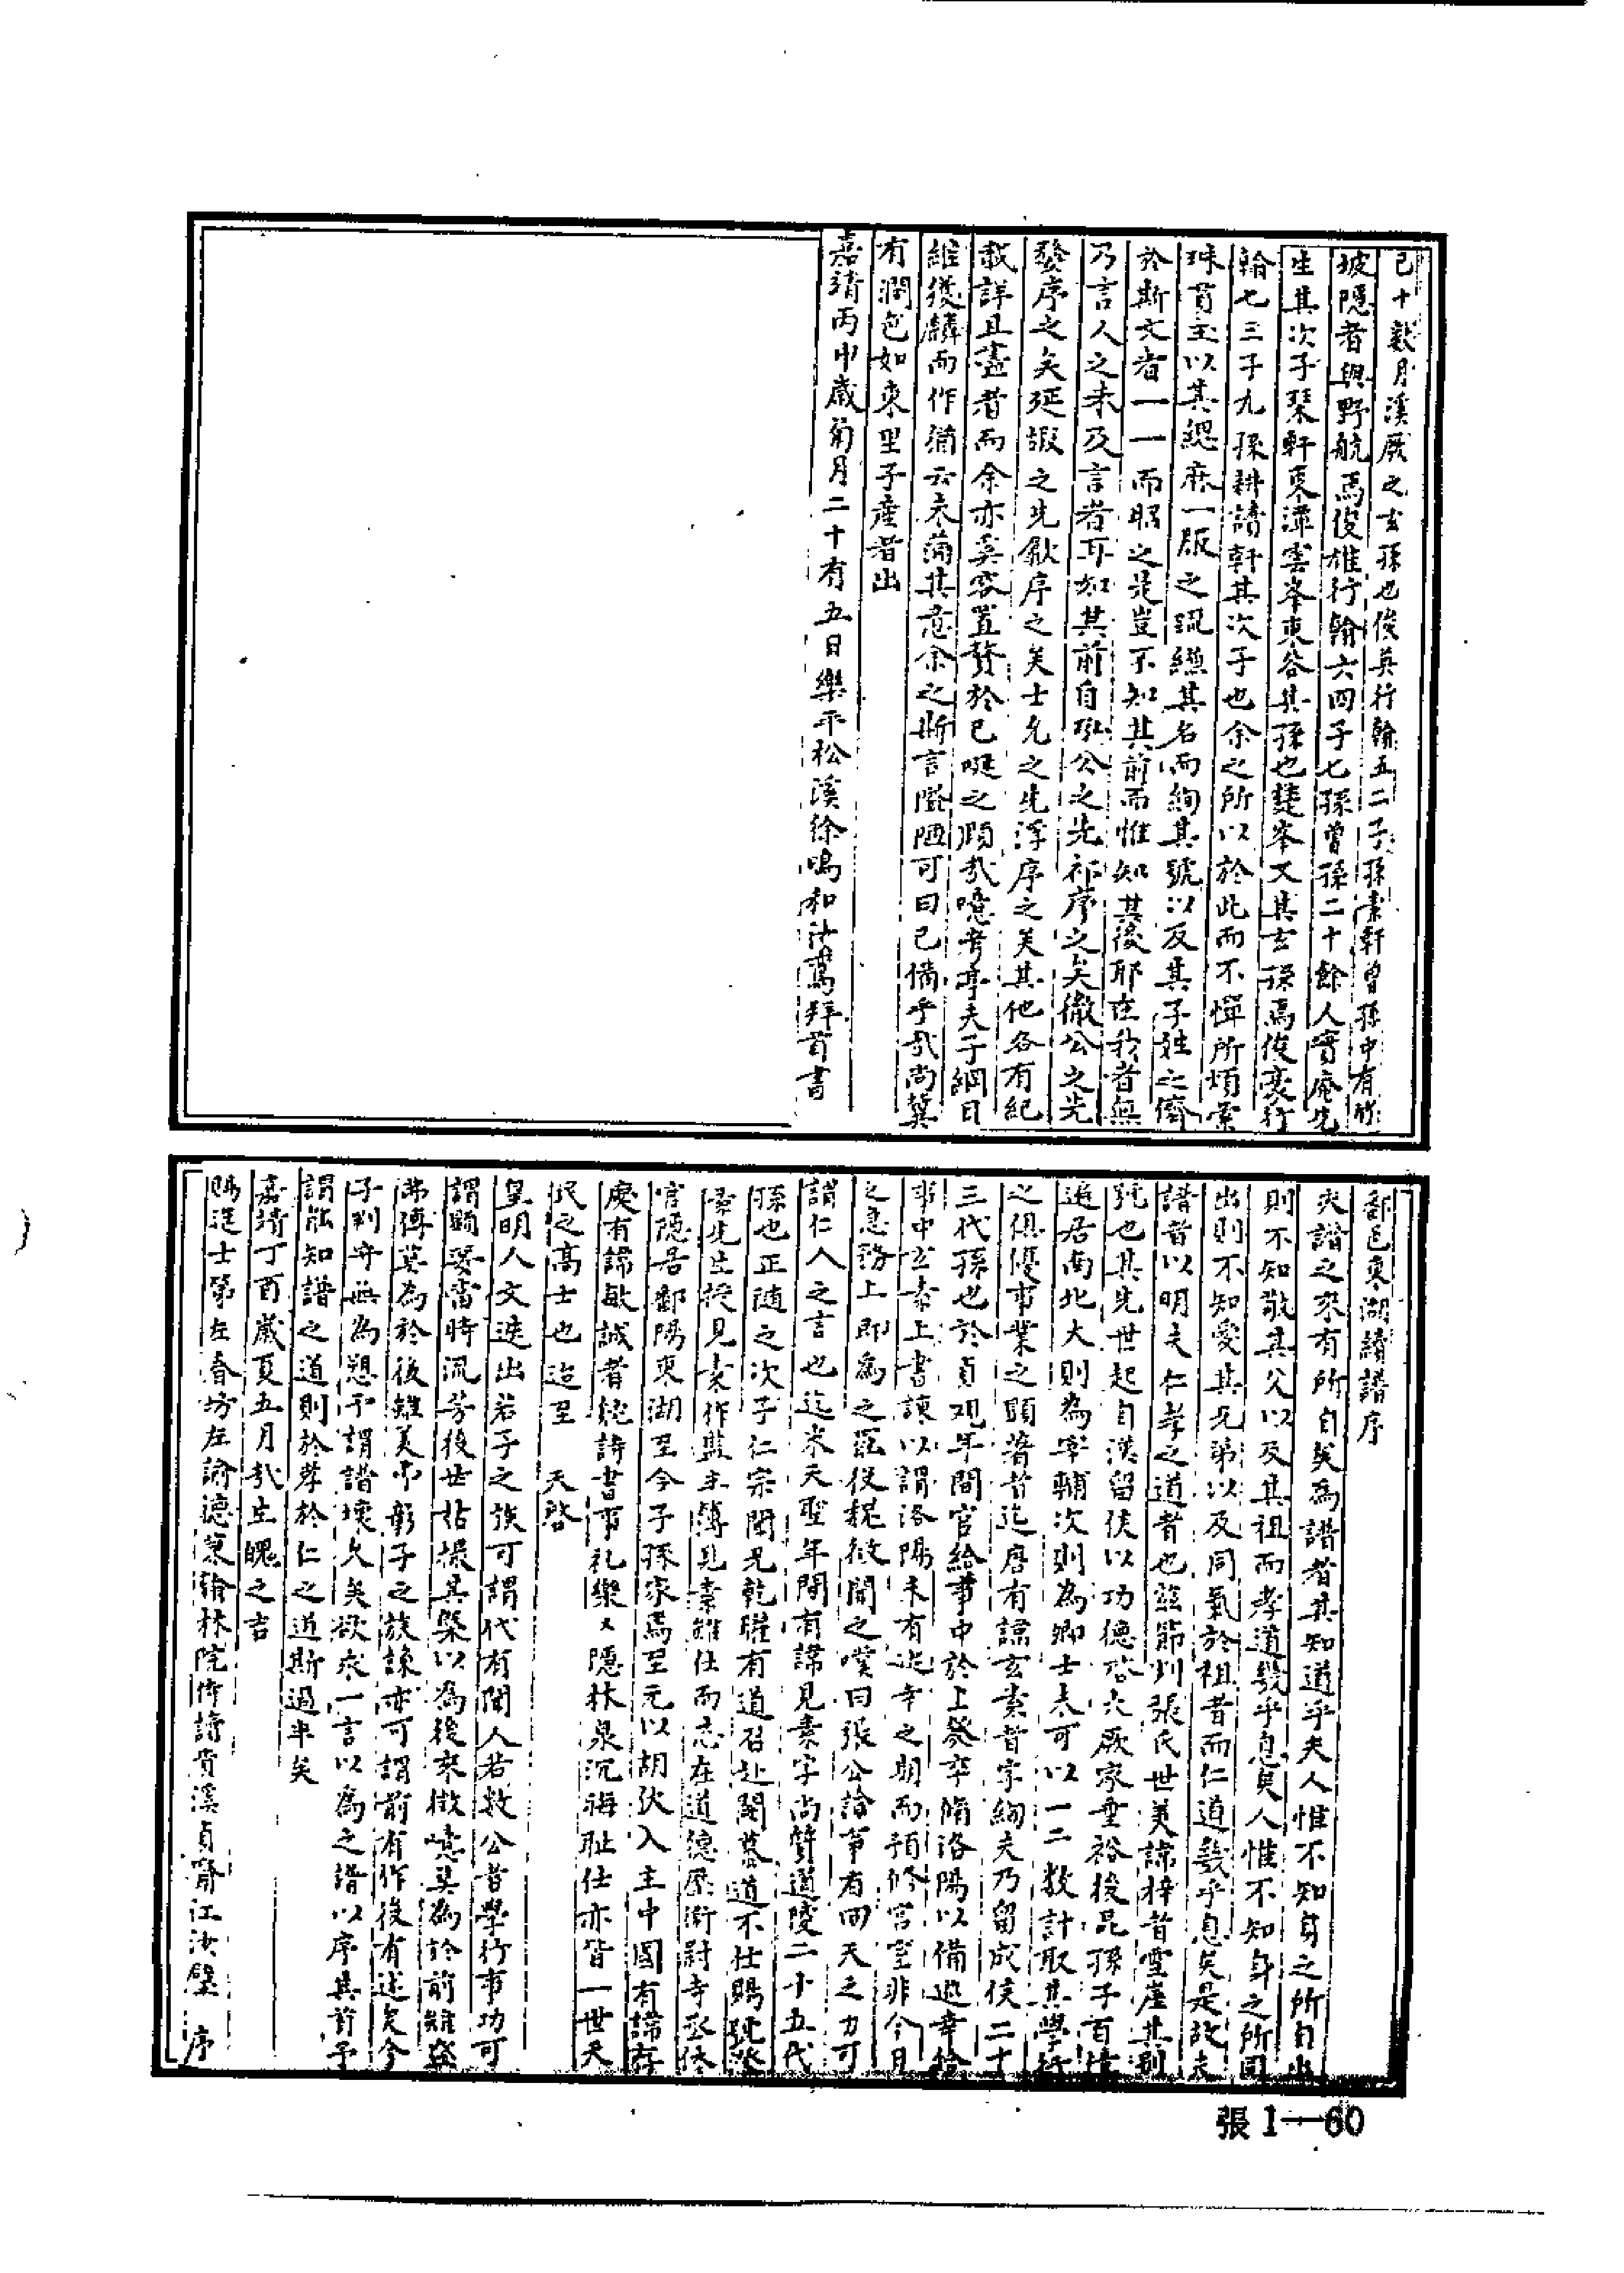 已十歎月溪厥之玄孫也俊英行翰五二子孫素軒曾孫中有竹
坡隱者與野航焉俊雄行翰六四子七孫曾孫二十餘人實庵先
生其次子琹軒東潭雲峯東谷其孫也楚峯又其玄孫焉俊豪行
翰七三子九孫耕讀軒其次子也余之所以於此而不憚所煩
以其緦麻一服之親繼其名而絢其號以及其子姓之
於斯文者一一而昭之是豈不知其前而惟知其後耶在我者無
乃言人之未及言者耳如其前自公之先祁序之矣徽公之先
發序之矣延椵之先歆序之矣士允之先浮序之矣其他各有紀
載詳且盡者而余亦奚容置贅於已哽之顧哉噫考亭夫子綱目
維獲麟而作猶云未備其意余之斯言隘陋可曰已備乎哉尚冀
有潤色如東里子產者出
嘉靖丙申歲菊月二十有五日樂平松溪徐鳴和拜首書
鄱邑東湖續譜序
夫譜之來有所自矣為譜者其知道乎夫人惟不知身之所自出
則不知敬其父以及其祖而孝道幾乎息矣人惟不知身之所同
出則不知愛其兄弟以及同氣於祖者而仁道幾乎息矣是故夫
譜者以明夫仁孝之道者也茲節判張氏世美諱梓者雪崖其別
號也其先世起自漢留侯以功德啓大厥家垂裕後昆孫子百
遍居南北大則為宰輔次則為卿士夫可以一二數計取其學行
之俱優事業之顯著者迄唐有諱玄素者字絢夫乃留成侯二十
三代孫也於貞觀年間官給事中於上發卒脩洛陽以備巡幸給
事中玄素上書諫以謂洛陽未有巡幸之期而預修宮室非今日
之急務上即為之罷役魏徵聞之嘆曰張公論事有回天之力可
謂仁人之言也迄宋天聖年間有諱見素字尚質道陵二十五代
孫也正隨之次子仁宗聞兄乾曜有道召赴闕慕道不仕賜號
先生授見素作監主簿見素雖仕而志在道德歷衛尉寺丞休
官隱居鄱陽東湖至今子孫家焉至元以胡狄入主中國有諱存
慶有諱敏誠者純詩書事礼樂隱林泉沉晦耻仕亦皆一世天
民之高士也迨至　天啓
皇明人文迭出若子之族可謂代有聞人若數公者學行事功可
謂顯要當時流芳後世拈撮其槩以為後來徵噫莫為於前雖盛
弗傳莫為於後雖美弗彰子之族諫亦可謂前有作後有述矣今
子判舟無為懇予謂譜壞久矣欲求一言以為之譜以序其首予
謂能知譜之道則於孝於仁之道斯過半矣
嘉靖丁酉歲夏五月哉生魄之吉
賜進士第左春坊左諭德兼翰林院侍讀貴溪貞齋江汝璧　序
張 1—60